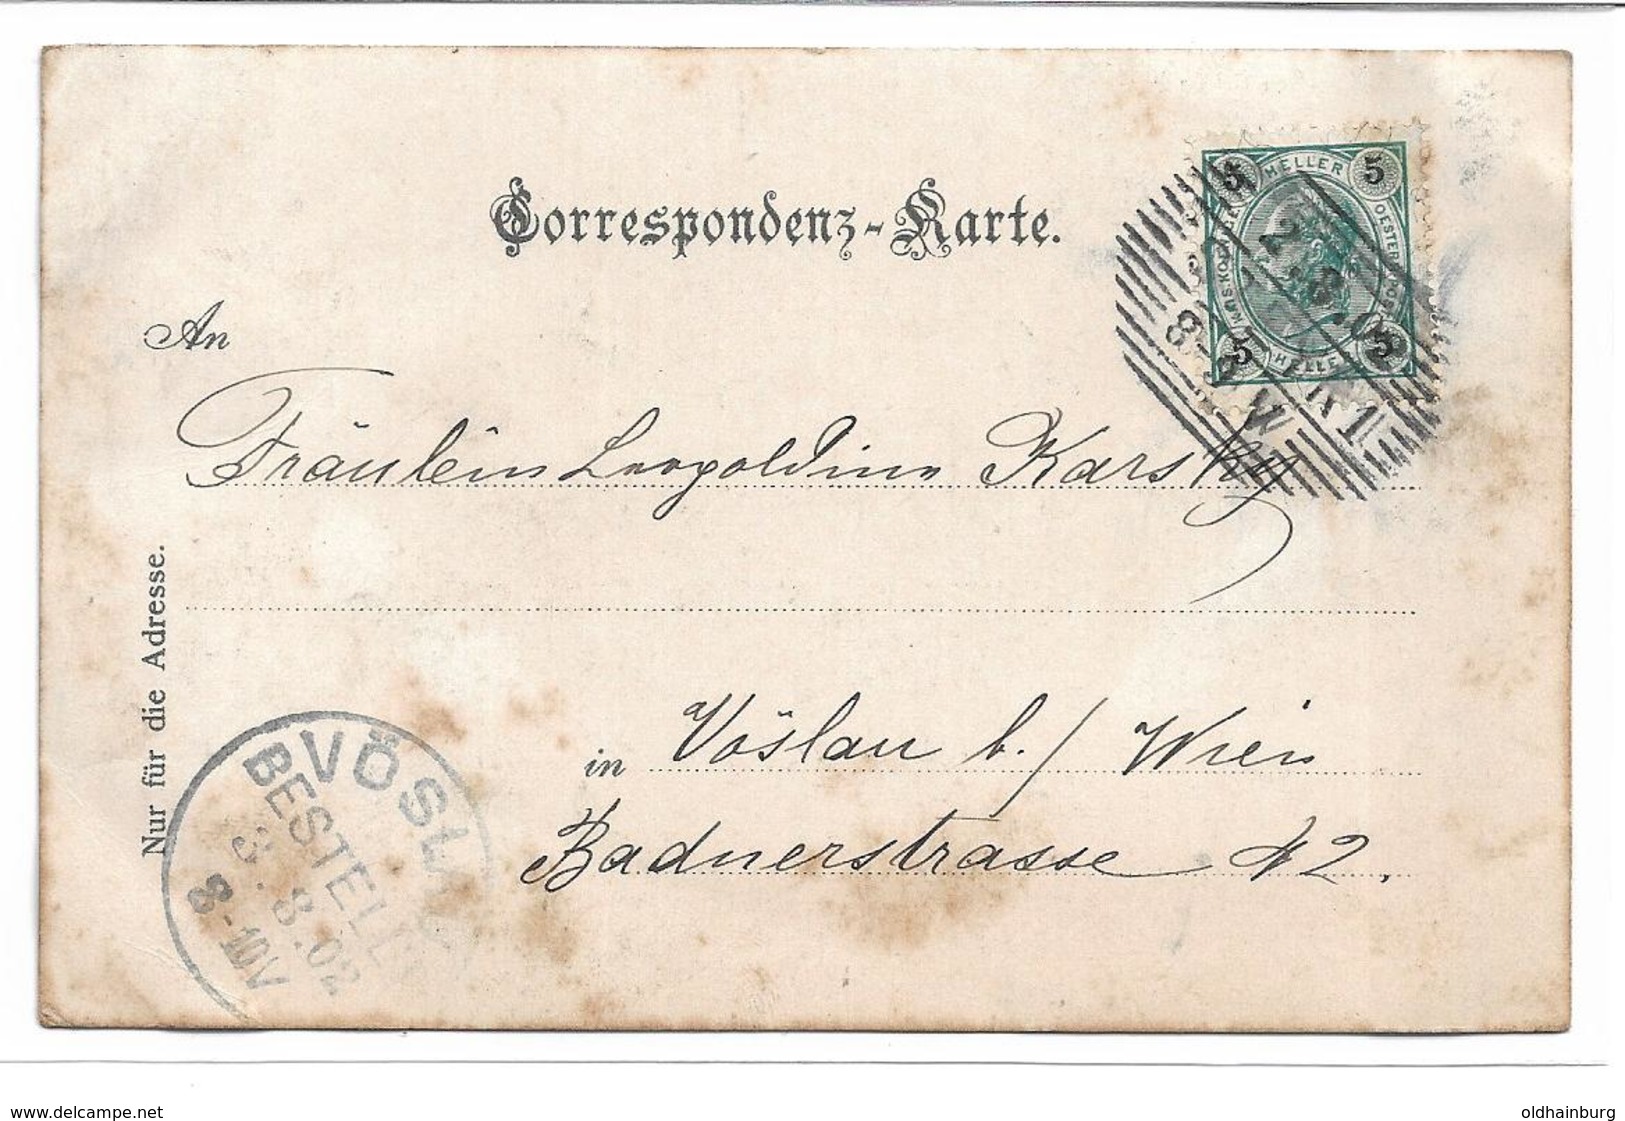 Correspondenz-Karte.
HELLER
5 5
5 5
2.8.02
8-9 V
1
An
Fräulein Leopoldine Karsky
Nur für die Adresse.
in Vöslau b./ Wien
Badnerstrasse 42.
VÖSLAU
BESTELLT
3.8.02
8-10V
www.delcampe.net
oldhainburg